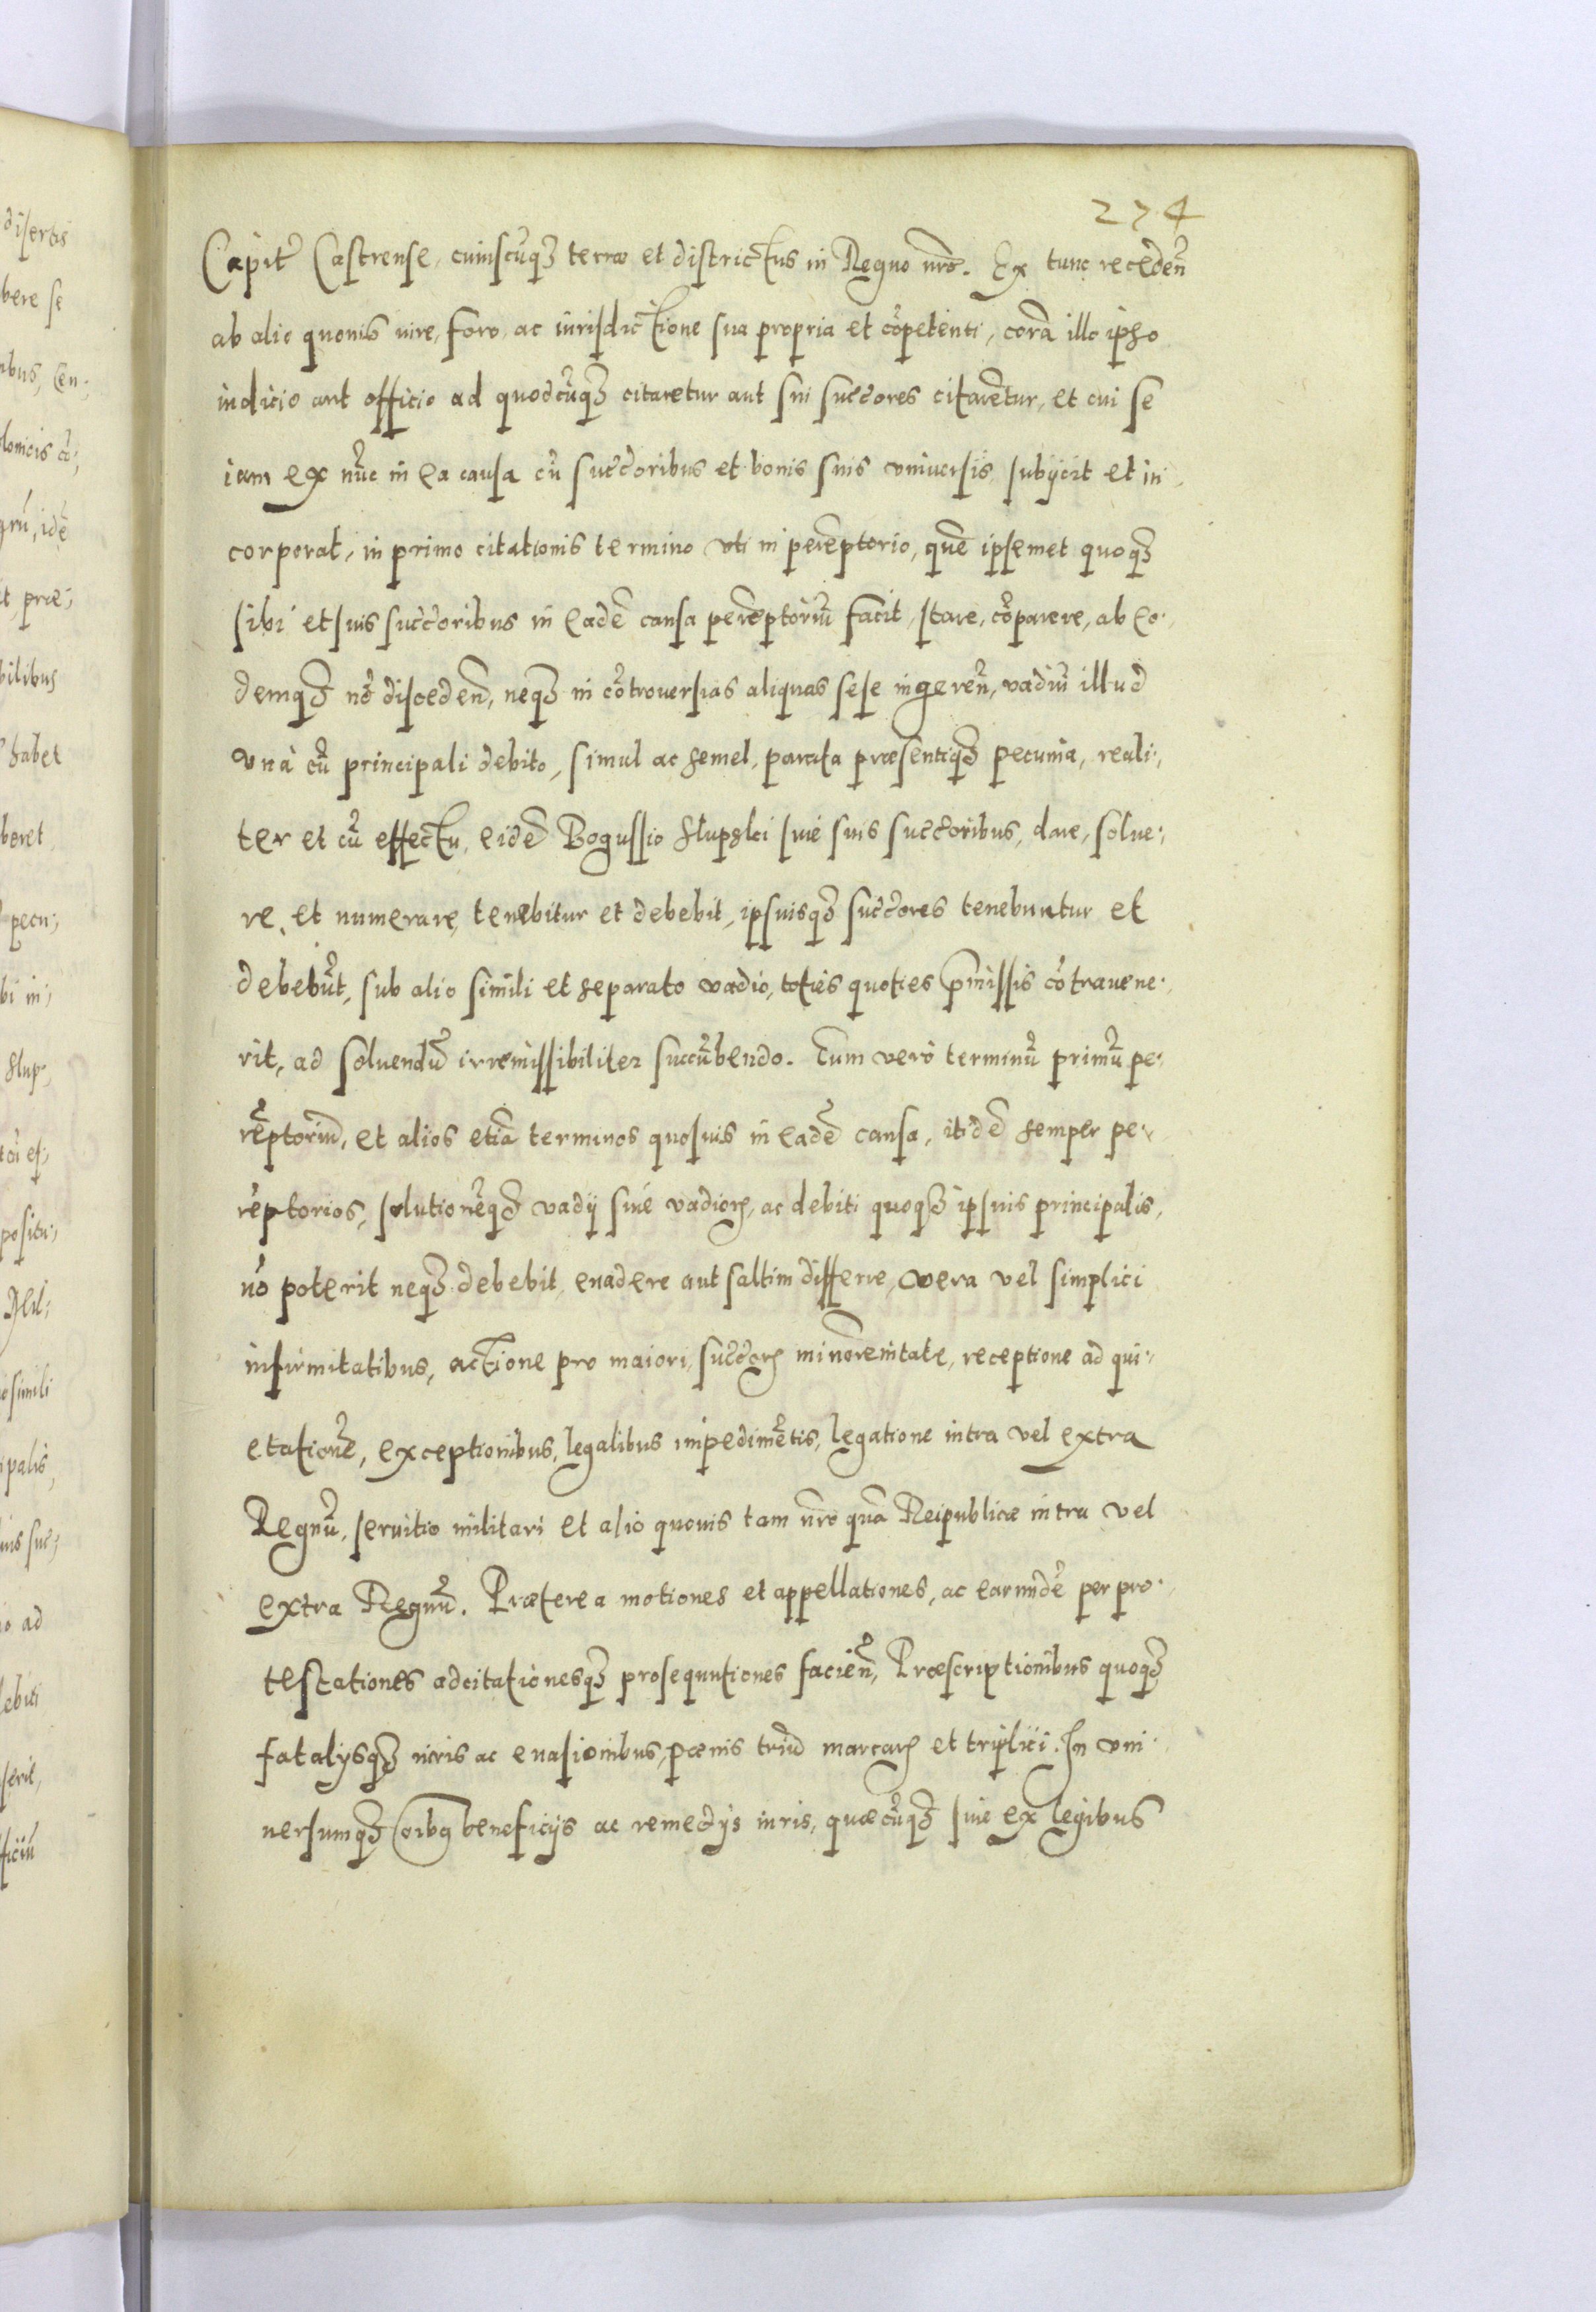 274
Capitr̃ Castrense, cuiuscũqȝ terræ et districtus in Regno nr̃o. Ex tunc recedeñ
ab alio quouis iure, foro, ac iurisdictione sua propria et cõpetenti, corã illo ipso
iudicio aut officio ad quodcũqȝ citaretur aut sui succ̃ores citarẽtur, et cui se
iam ex nũc in ea causa cũ succ̃oribus et bonis suis vniuersis subijcit et in-
corporat, in primo citationis termino vti in perẽptorio, quẽ ipsemet quoqȝ
sibi et suis succ̃oribus in eadẽ causa perẽptoriũ facit, stare, cõparere, ab eo-
demqȝ nõ discedeñ, neqȝ in cõtrouersias aliquas sese ingereñ, vadiũ illud
vnà cũ principali debito, simul ac semel, parata præsentiqȝ pecunia, reali-
ter et cũ effectu, eidẽ Bogussio Slupski siue suis succ̃oribus, dare, solue-
re, et numerare, tenebitur et debebit, ipsiusqȝ succ̃ores tenebuntur et
debebũt, sub alio simili et separato vadio, toties quoties p̃missis cõtrauene-
rit, ad soluendũ irremissibiliter succũbendo. Eum verò terminũ primũ pe-
rẽptoriũ, et alios etiã terminos quosuis in eadẽ causa, itidẽ semper pe-
rẽptorios, solutionẽqȝ vadij siue vadiorꝝ, ac debiti quoqȝ ipsius principalis,
nõ poterit neqȝ debebit, euadere aut saltim differre, vera vel simplici
infirmitatibus, actione pro maiori, succ̃orꝝ minorẽnitate, receptione ad qui-
etationẽ, exceptionibus, legalibus impedimẽtis, legatione intra vel extra
Regnũ, seruitio militari et alio quouis tam nr̃o quã Reipublicæ intra vel
extra Regnũ. Præterea motiones et appellationes, ac earundẽ per pro-
testationes adcitationesqȝ prosequutiones facieñ, Præscriptionibus quoqȝ
fatalijsqȝ iuris ac euasionibus, pœnis triũ marcarꝝ et triplici. In vni-
uersumqȝ oĩbꝰ beneficijs ac remedijs iuris, quæcũqȝ siue ex legibus